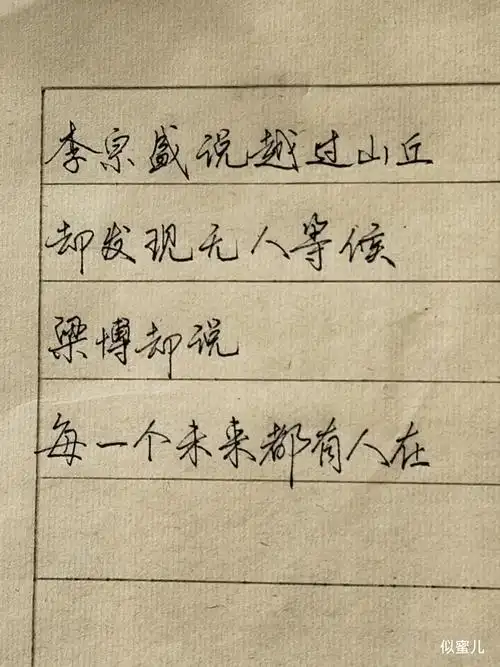 李宗盛说越过山丘
却发现无人等候
梁博却说
每一个未来都有人在
似蜜儿